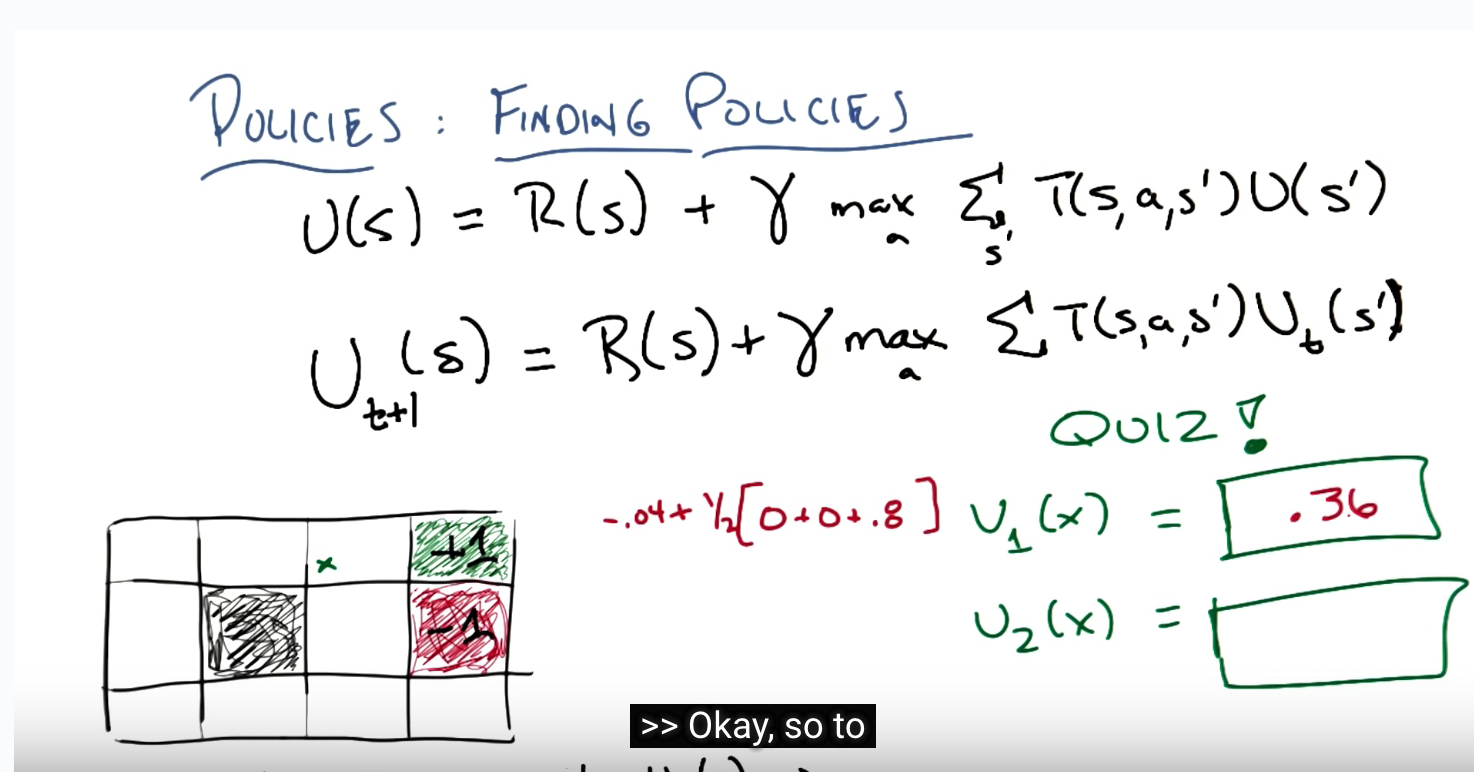 POLICIES : FINDING POLICIES
U(s) = R(s) + γ max_a Σ_s' T(s,a,s')U(s')
U_t+1(s) = R(s) + γ max_a Σ T(s,a,s')U_t(s')
QUIZ!
-.04+ ½[0+0+.8] U_1(x) = .36
x +1
-1
U_2(x) =
>> Okay, so to